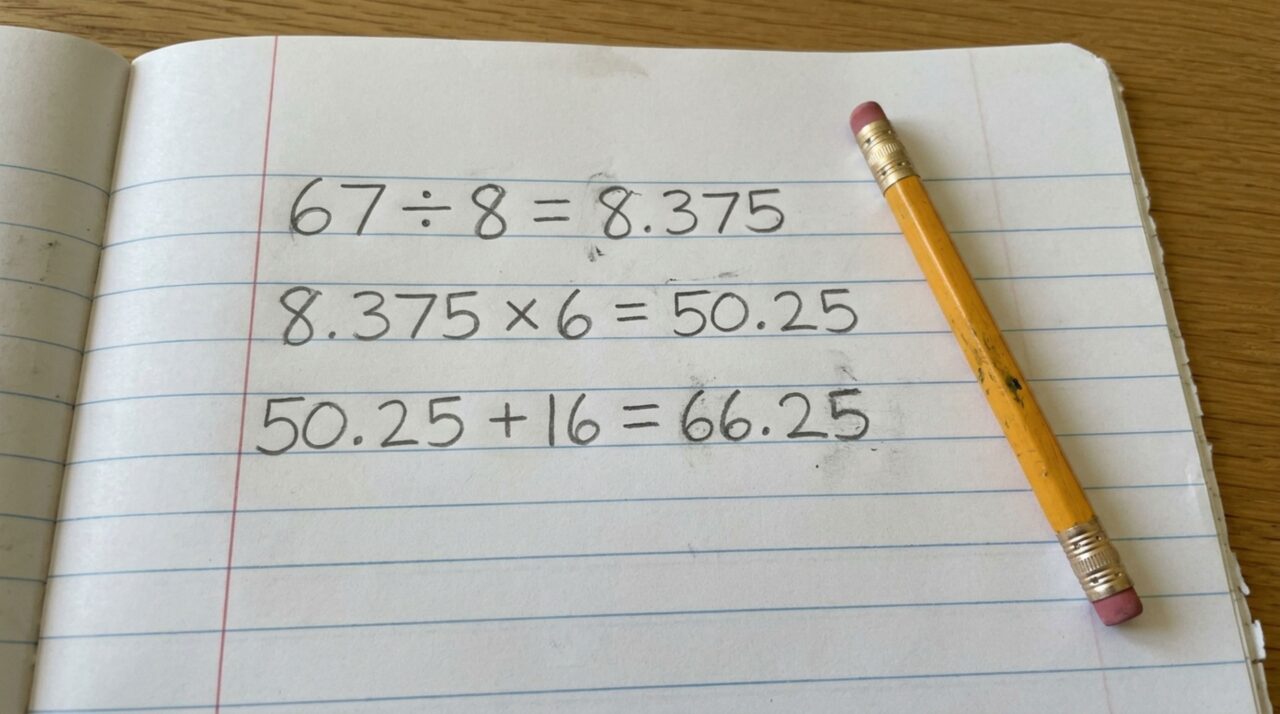 67 ÷ 8 = 8.375
8.375 × 6 = 50.25
50.25 + 16 = 66.25